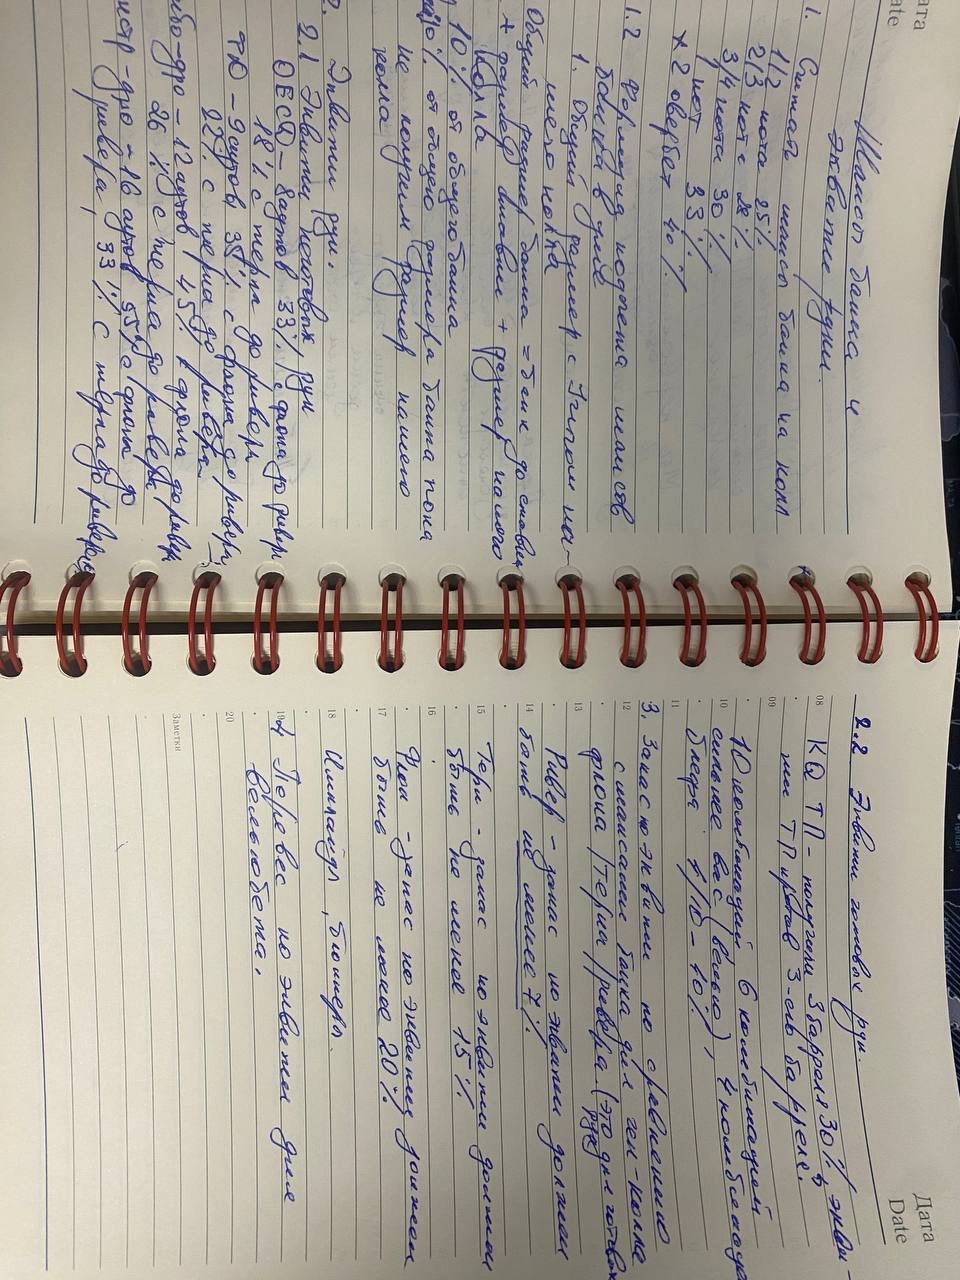 Дата
Date
Шансы банка и
экватие руки.
1. Считая шансы банка на колл
1/2 пота 25%
2/3 пота 28%
3/4 пота 30%
1 пот 33%
x 2 овербет 40%
1.2 Формула подсчета шансов
банка для
1. Общий размер с Учетом на-
шего колла
Общий размер банка = банк до ставки
+ размер ставки + размер нашего
колла
10% от общего банка
от общего размера банка пока
не получим размер нашего
колла
2. Эквити руки.
2.1 Эквити неготовых рук
ОЕСД - 8 аутов 33% с флопа до ривера
18% с терна до ривера
ФД - 9 аутов 35% с флопа до ривера,
22% с терна до ривера
дро - 12 аутов 45% с флопа до ривера
26% с терна до ривера
дро - 16 аутов 55% с флопа до
ривера, 33% с терна до ривера
Дата
Date
2.2 Эквити готовых рук.
08
KQ ТП - получили 3 баррел 30% экви-
ти ТП против 3-его барреля.
09
10 комбинаций 6 комбинаций
10
сильнее вас (велью), 4 комбинации
блефа. 4/10 - 40%
11
3. Запас по эквити по сравнению
12
с шансами банка для колла
флопа / терна / ривера. (это для готовых
рук)
13
Ривер - запас по эквити должен
14
быть не менее 7%
15
Терн - запас по эквити должен
быть не менее 15%
16
Флоп - запас по эквити должен
17
быть не менее 20%
18
Имплайд, бинкеры.
19
4 Перевес по эквити для
велью бета.
20
Заметки